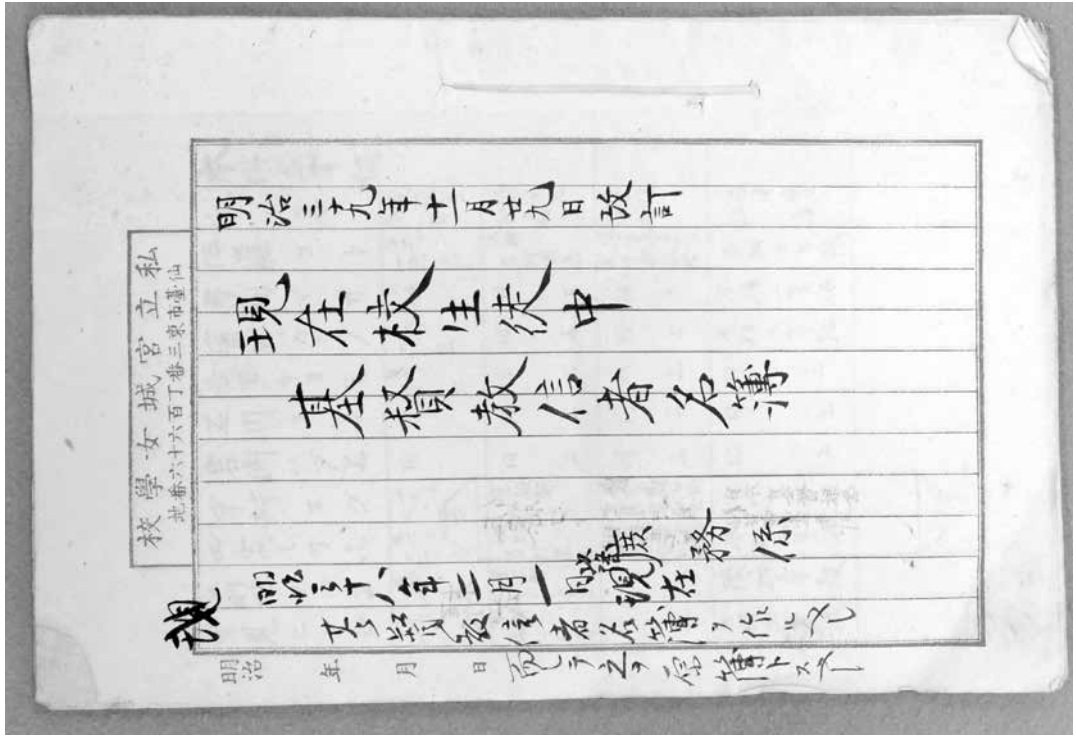 私立宮城女學校
仙臺市東三番丁百六十六番地
明治三十九年十一月廿九日改訂
現在校生徒中
基督教信者名簿
教務係
明治三十八年二月一日現在
基督教信者名簿ヲ作ルベシ
而シテ之ヲ原簿トスベシ
明治 年 月 日